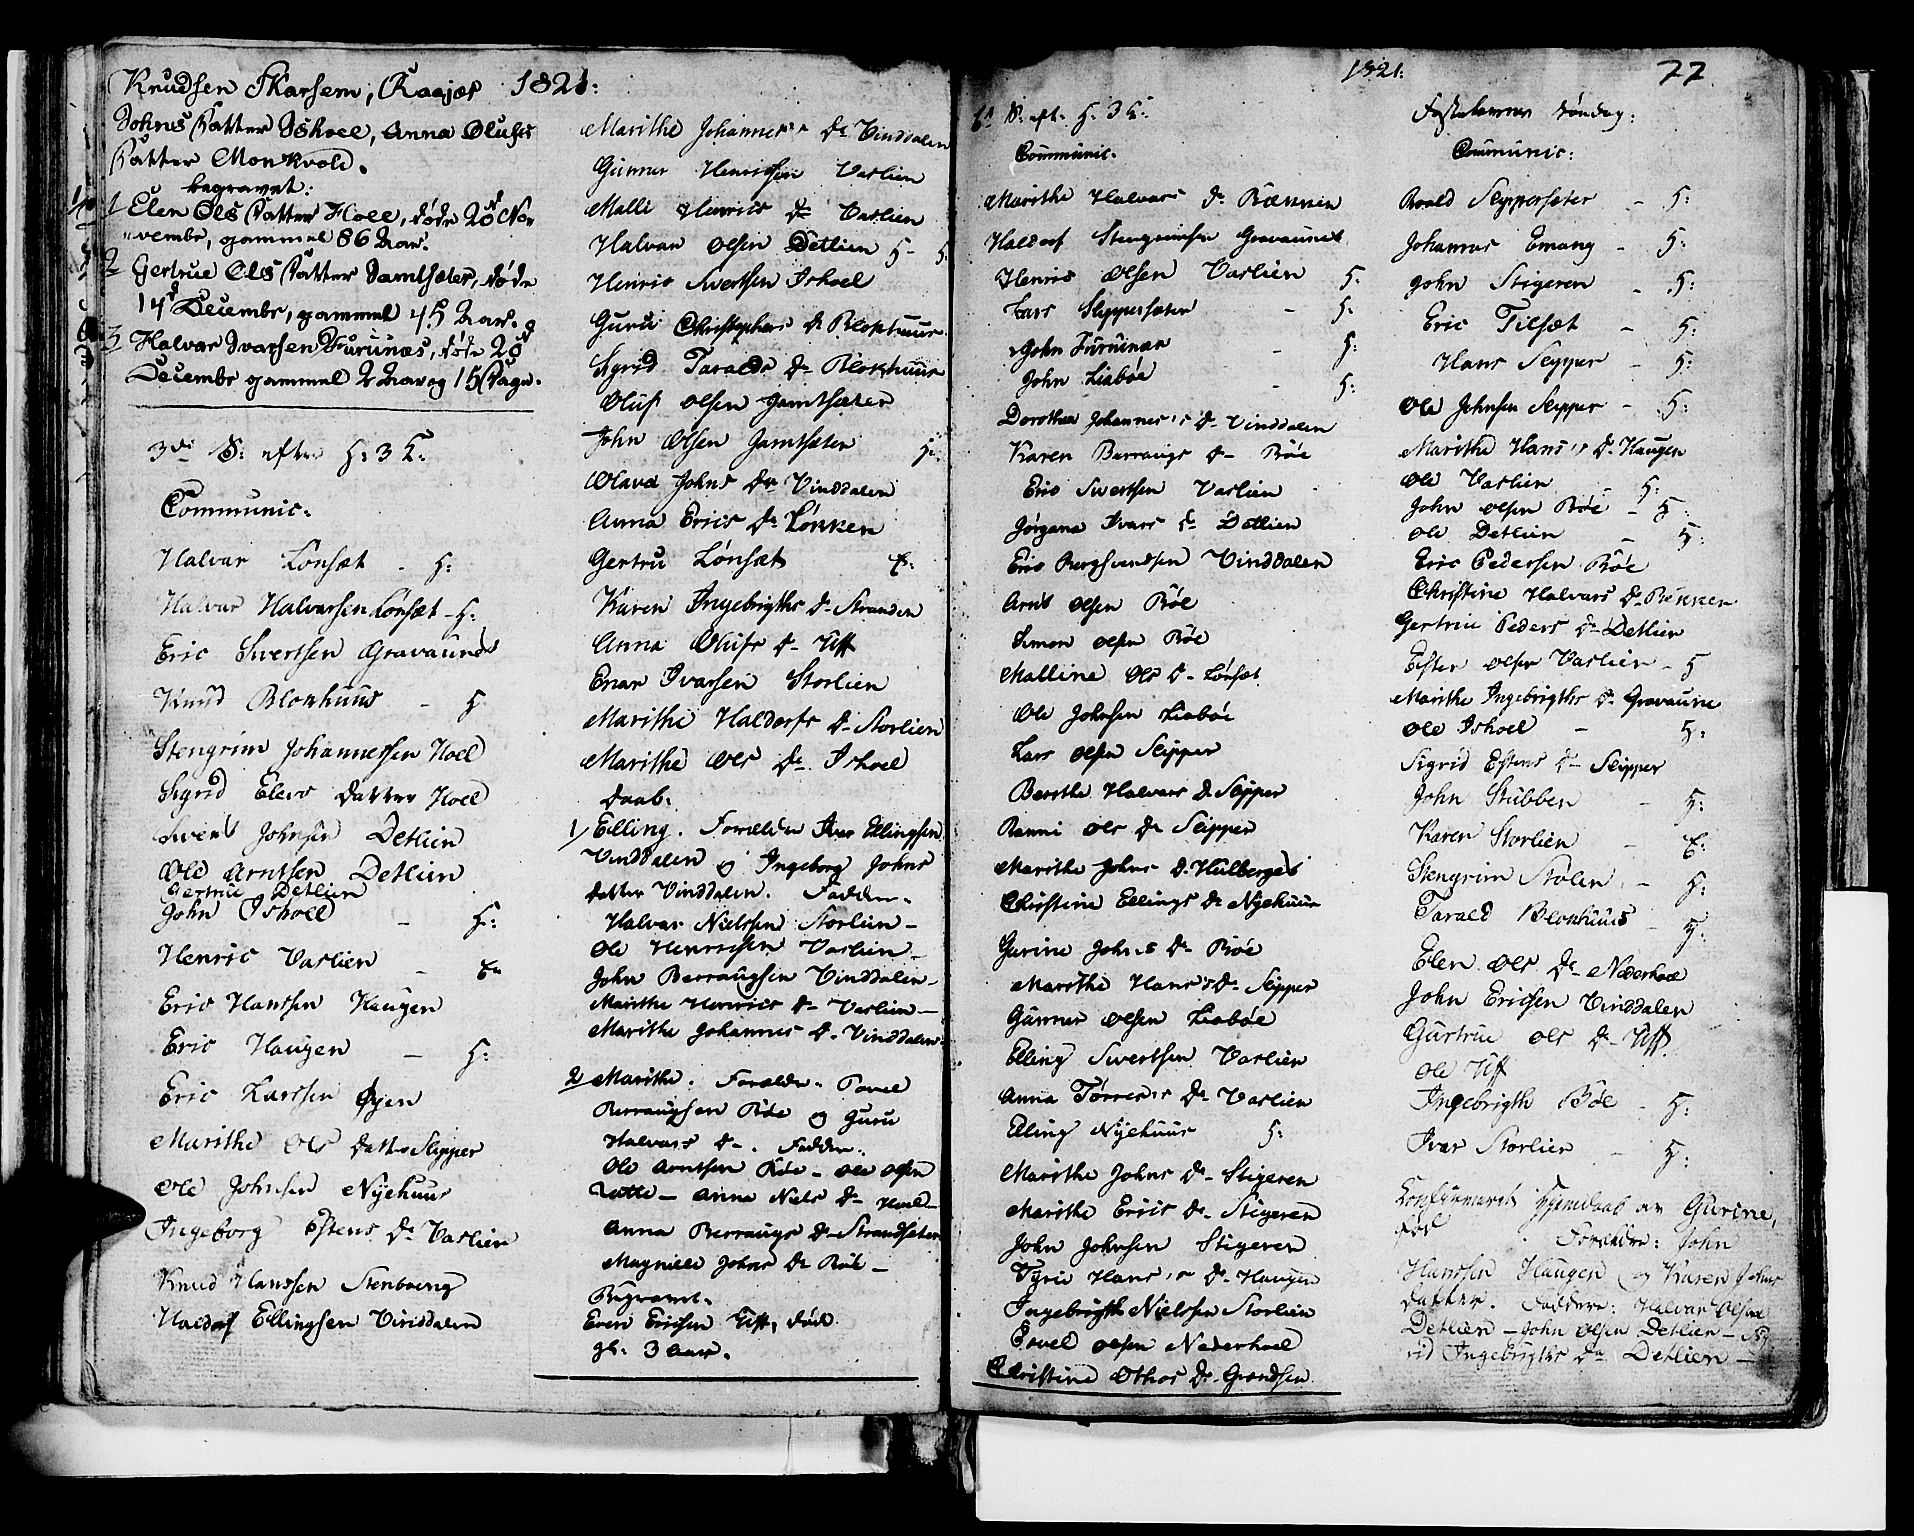 Knudsen Skarsem, Raajas 1821:
Johns Datter Ishoel, Anna Olufs
Datter Monkvold.
begravet:
1 Elen Ols Datter Hoel, døde 28d No-
vembr, gammel 86 Aar.
2 Gertrue Ols Datter Jamtsæter, døde
14d Decembr, gammel 45 Aar.
3 Halvar Ivarsen Furunæs, døde 28d
Decembr gammel 2 Aar og 15 Dage.
3de S: efter H: 3 K:
Communic.
Halvar Lonsæt - H:
Halvar Halvarsen Lønsæt - H:
Eric Sivertsen Gravaunes
Knud Blokhuus - H
Stengrim Johannessen Hoel
Sigrid Elevs Datter Hoel
Svend Johnsen Detlien
Ole Arntsen Detlien
Gertrue Detlien
John Ishoel - H:
Henric Varlien -
Eric Hanssen Haugen
Eric Haugen - H:
Eric Larssen Øyen
Marithe Ols Datter Slipper
Ole Johnsen Nyehuus
Ingeborg Estens Dr Varlien
Knud Hanssen Stenboeng
Haldorf Ellingsen Vinddalen
Marithe Johannes's Dr Vinddalen
Gunner Henrichsen Varlien
Malli Henrics Dr Varlien
Halvar Olsen Detlien H-
Henric Sivertsen Ishoel
Guru Christophers Dr Blokhuus
Sigrid Taralds Dr Blokhuus
Oluf Olsen Jamtsæter
John Olsen Jamtsæter H:
Olava Johns Dr Vinddalen
Anna Erics Dr Lønken
Gertru Lønsæt
Karen Ingebrigths Dr Stranden
Anna Olufs Dr Uff
Enar Ivarsen Storlien
Marithe Haldorfs Dr Storlien
Marithe Ols Dr Ishoel
Daab.
1/ Elling. Forældre Ivar Ellingsen
Vinddalen og Ingeborg Johns
datter Vinddalen. Faddere.
Halvar Nielssen Storlien -
Ole Henricsen Varlien -
John Berraugsen Vinddalen -
Marithe Henrics Dr Varlien -
Marithe Johannes Dr Vinddalen.
2/ Marithe. Forældre. Povel
Berraugsen Røe og Guru
Halvars Dr. Faddere.
Ole Arntsen Røe - Ole Olsen
- Anne Niels Dr Hoel -
Anna Berraugs Dr Strandsæter
Magnille Johns Dr Røe -
Begravet.
Even Ericsen Uff, død.
gl. 3 Aar.
1821: 77
6te S. eft. H: 3 K:
Communic.
Marithe Halvars Dr Rønnen
Haldorf Stengrimsen Gravaunet
Henric Olsen Varlien H:
Lars Slippersæter - H:
John Furunæs - H:
John Liabøe - H:
Dorothea Johannes's Dr Vinddalen
Karen Berraugs Dr Røe
Eric Sivertsen Varlien
Jørgana Ivars Dr Detlien
Eric Bergsvendsen Vinddalen
Arnt Olsen Røe
Simon Olsen Røe
Malline Ols Dr Lønsæt
Ole Johnsen Liabøe
Lars Olsen Slipper
Berethe Halvars Dr Slipper
Ranni Ols Dr Slipper
Marithe Johns Dr Hulberget
Christine Ellings Dr Nyehuus
Gurine Johns Dr Røe
Marithe Hans's Dr Slipper
Gunner Olsen Liabøe
Elling Sivertsen Varlien
Anna Tørres's Dr Varlien
Elling Nyehuus H:
Marithe Johns Dr Stigeren
Marithe Erics Dr Stigeren
John Johnsen Stigeren
Tyri Hans's Dr Haugen
Ingebrigth Nielssen Storlien
Povel Olsen Nederhoel
Christine Othos Dr Grandsen
Fastelavns Søndag:
Communic:
Roald Slippersæter - H:
Johannes Emang - H:
John Stigeren - H:
Eric Tilsæt - H:
Hans Slipper - H:
Ole Johnsen Slipper - H:
Marithe Hans's Dr Haugen
Ole Varlien - H:
John Olsen Røe - H:
Ole Detlien - H:
Eric Pedersen Røe
Christine Halvars Dr Rønnen
Gertrue Peders Dr Detlien
Esten Olsen Varlien - H
Marithe Ingebrigths Dr Gravaune
Ole Ishoel - H:
Sigrid Estens Dr Slipper
John Stubben - H:
Karen Storlien -
Stengrim Stølen - H:
Tarald Blokhuus - H:
Elen Ols Dr Nederhoel
John Ericsen Vinddalen
Gurtrue Ols Dr Uff
Ole Uff
Ingebrigth Røe - H:
Ivar Storlien - H:
Confirmeret Hjemdaab av Gurine,
født . Forældre: John
Hanssen Haugen og Karen Johns
datter. Faddere: Halvar Olsen
Detlien - John Olsen Detlien - Sig-
rid Ingebrigths Dr Detlien -